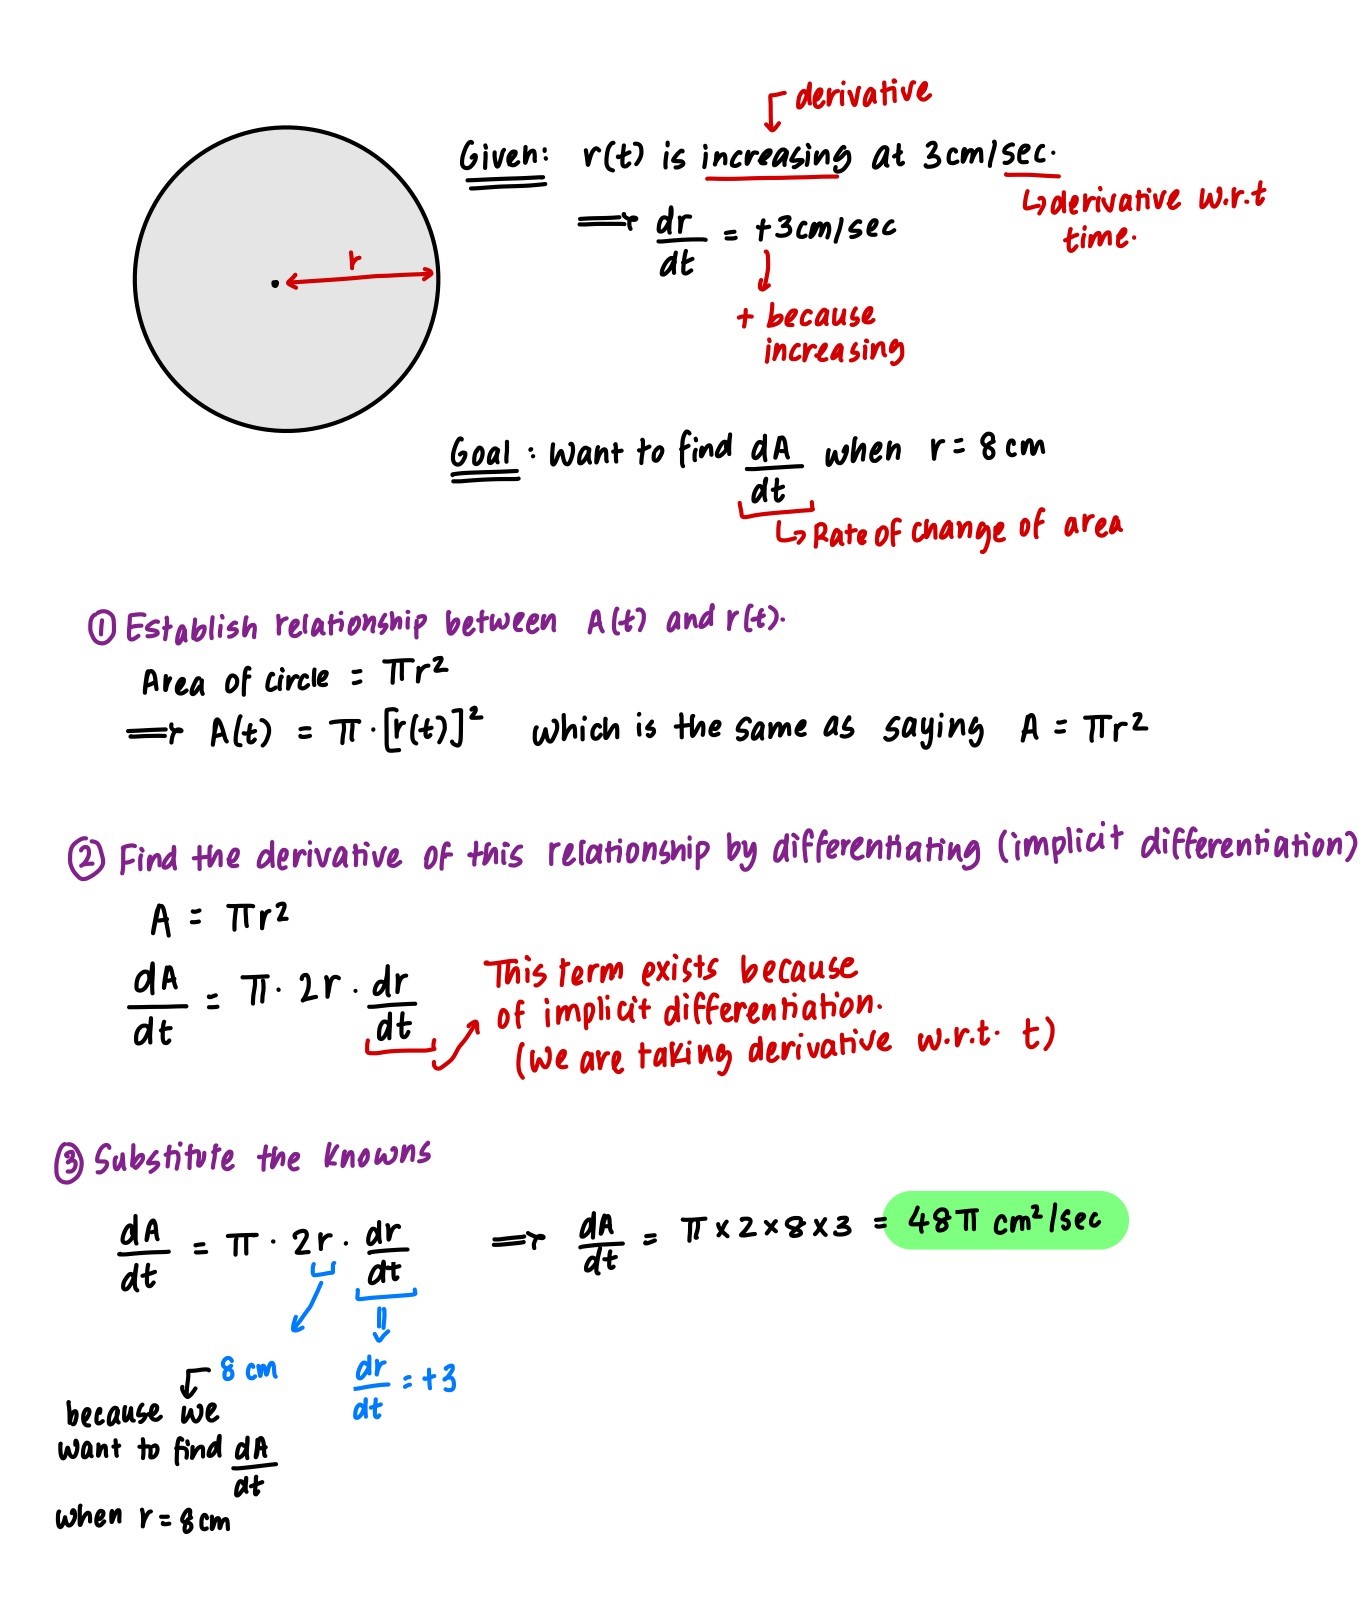 derivative
Given: r(t) is increasing at 3cm/sec.
↳ derivative w.r.t
time.
⟹ dr/dt = +3cm/sec
r
+ because
increasing
Goal: Want to find dA/dt when r = 8 cm
↳ Rate of change of area
① Establish relationship between A(t) and r(t).
Area of circle = πr²
⟹ A(t) = π · [r(t)]² which is the same as saying A = πr²
② Find the derivative of this relationship by differentiating (implicit differentiation)
A = πr²
dA/dt = π · 2r · dr/dt
This term exists because
of implicit differentiation.
(We are taking derivative w.r.t. t)
③ Substitute the knowns
dA/dt = π · 2r · dr/dt ⟹ dA/dt = π × 2 × 8 × 3 = 48π cm²/sec
8 cm
dr/dt = +3
because we
want to find dA/dt
when r = 8cm